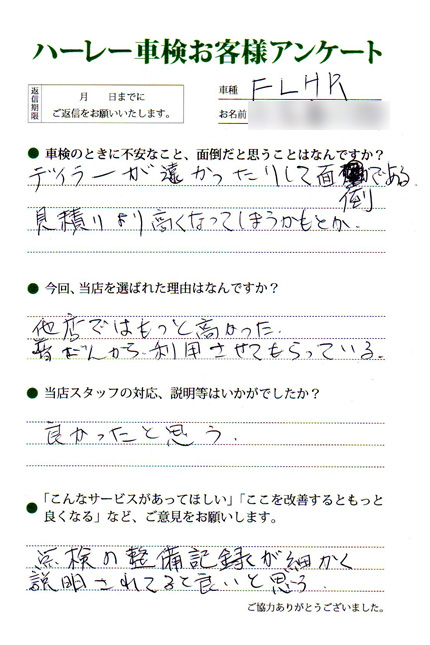 ハーレー車検お客様アンケート
返信期限
月　　日までに
ご返信をお願いいたします。
車種 FLHR
お名前
● 車検のときに不安なこと、面倒だと思うことはなんですか？
ディラーが遠かったりして面倒である.
見積りより高くなってしまうかもとか.
● 今回、当店を選ばれた理由はなんですか？
他店ではもっと高かった.
普だんから利用させてもらっている.
● 当店スタッフの対応、説明等はいかがでしたか？
良かったと思う.
● 「こんなサービスがあってほしい」「ここを改善するともっと
良くなる」など、ご意見をお願いします。
点検の整備記録が細かく
説明されてると良いと思う.
ご協力ありがとうございました。